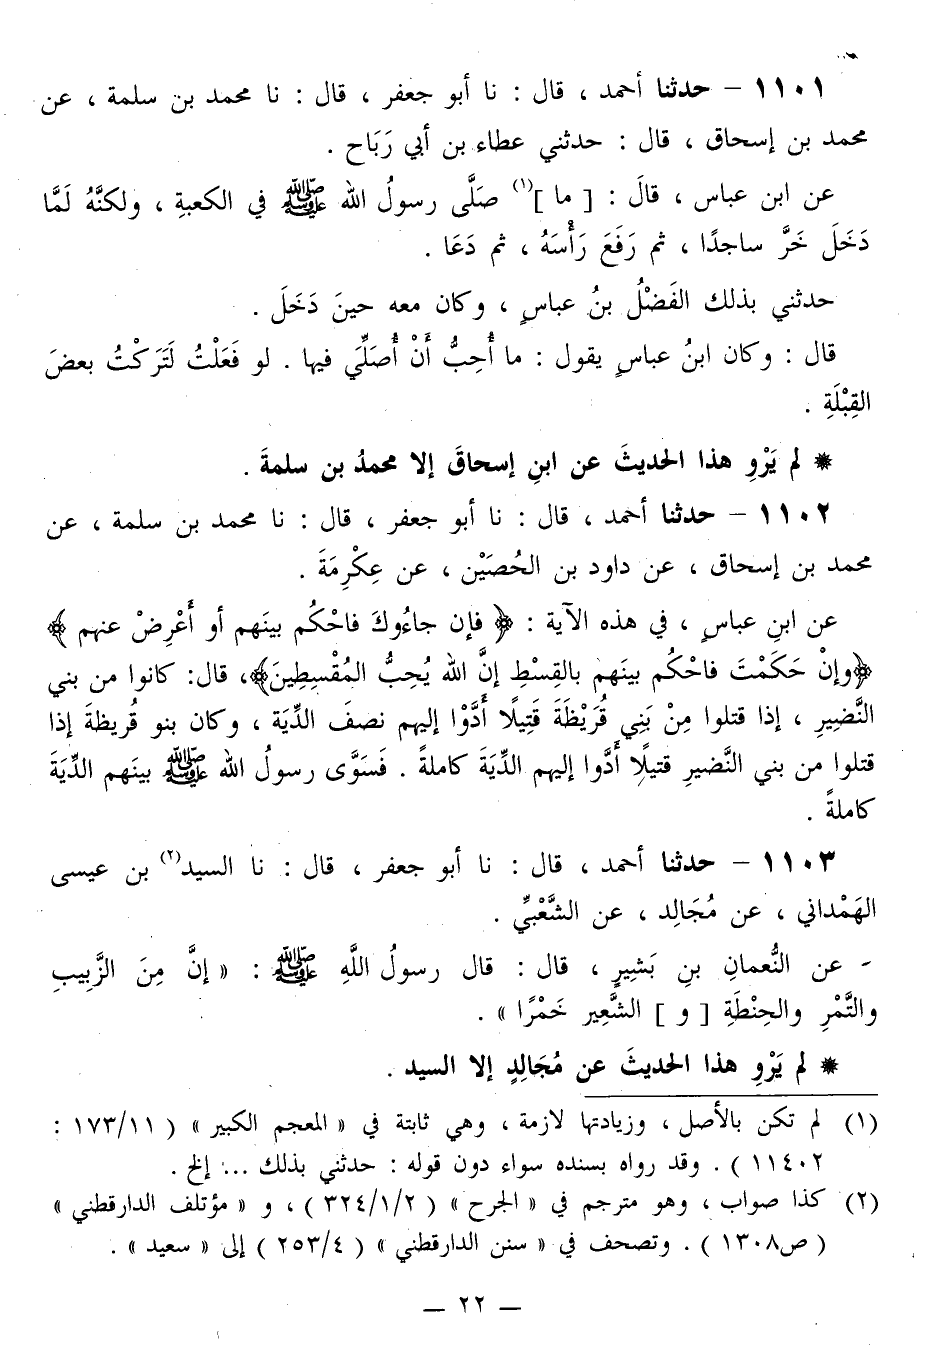 ١١٠١ – حدثنا أحمد ، قال : نا أبو جعفر ، قال : نا محمد بن سلمة ، عن
محمد بن إسحاق ، قال : حدثني عطاء بن أبي رَبَاح .
عن ابن عباس ، قالَ : [ ما ](١) صَلَّى رسولُ الله ﷺ في الكعبةِ ، ولكنَّهُ لَمَّا
دَخَلَ خَرَّ ساجدًا ، ثم رَفَعَ رَأْسَهُ ، ثم دَعَا .
حدثني بذلك الفَضْلُ بنُ عباسٍ ، وكان معه حينَ دَخَلَ .
قال : وكان ابنُ عباسٍ يقول : ما أُحِبُّ أَنْ أُصَلِّيَ فيها . لو فَعَلْتُ لَتَرَكْتُ بعضَ
القِبْلَةِ .
* لم يَرْوِ هذا الحديثَ عن ابنِ إسحاقَ إلا محمدُ بن سلمةَ .
١١٠٢ – حدثنا أحمد ، قال : نا أبو جعفر ، قال : نا محمد بن سلمة ، عن
محمد بن إسحاق ، عن داود بن الحُصَيْن ، عن عِكْرِمَةَ .
عن ابنِ عباسٍ ، في هذه الآية : ﴿ فإن جاءُوكَ فاحْكُم بينَهم أو أَعْرِضْ عنهم ﴾
﴿وإنْ حَكَمْتَ فاحْكُم بينَهم بالقِسْطِ إنَّ الله يُحِبُّ المُقْسِطِينَ﴾، قال: كانوا من بني
النَّضِيرِ ، إذا قتلوا مِنْ بَنِي قُرَيْظَةَ قَتِيلًا أَدَّوْا إليهم نصفَ الدِّيَة ، وكان بنو قُريظةَ إذا
قتلوا من بني النَّضيرِ قتيلًا أَدَّوا إليهم الدِّيَةَ كاملةً . فَسَوَّى رسولُ الله ﷺ بينَهم الدِّيَةَ
كاملةً .
١١٠٣ – حدثنا أحمد ، قال : نا أبو جعفر ، قال : نا السيد(٢) بن عيسى
الهَمْداني ، عن مُجَالِد ، عن الشَّعْبيِّ .
- عن النُّعمانِ بنِ بَشيرٍ ، قال : قال رسولُ اللَّهِ ﷺ : « إنَّ مِنَ الزَّبِيبِ
والتَّمْرِ والحِنْطَةِ [ و ] الشَّعِير خَمْرًا » .
* لم يَرْوِ هذا الحديثَ عن مُجَالِدٍ إلا السيد .
(١) لم تكن بالأصل ، وزيادتها لازمة ، وهي ثابتة في « المعجم الكبير » ( ١١/ ١٧٣ :
١١٤٠٢ ) . وقد رواه بسنده سواء دون قوله : حدثني بذلك ... إلخ .
(٢) كذا صواب ، وهو مترجم في « الجرح » ( ٢/ ١/ ٣٢٤ ) ، و « مؤتلف الدارقطني »
( ص١٣٠٨ ) . وتصحف في « سنن الدارقطني » ( ٤/ ٢٥٣ ) إلى « سعيد » .
— ٢٢ —